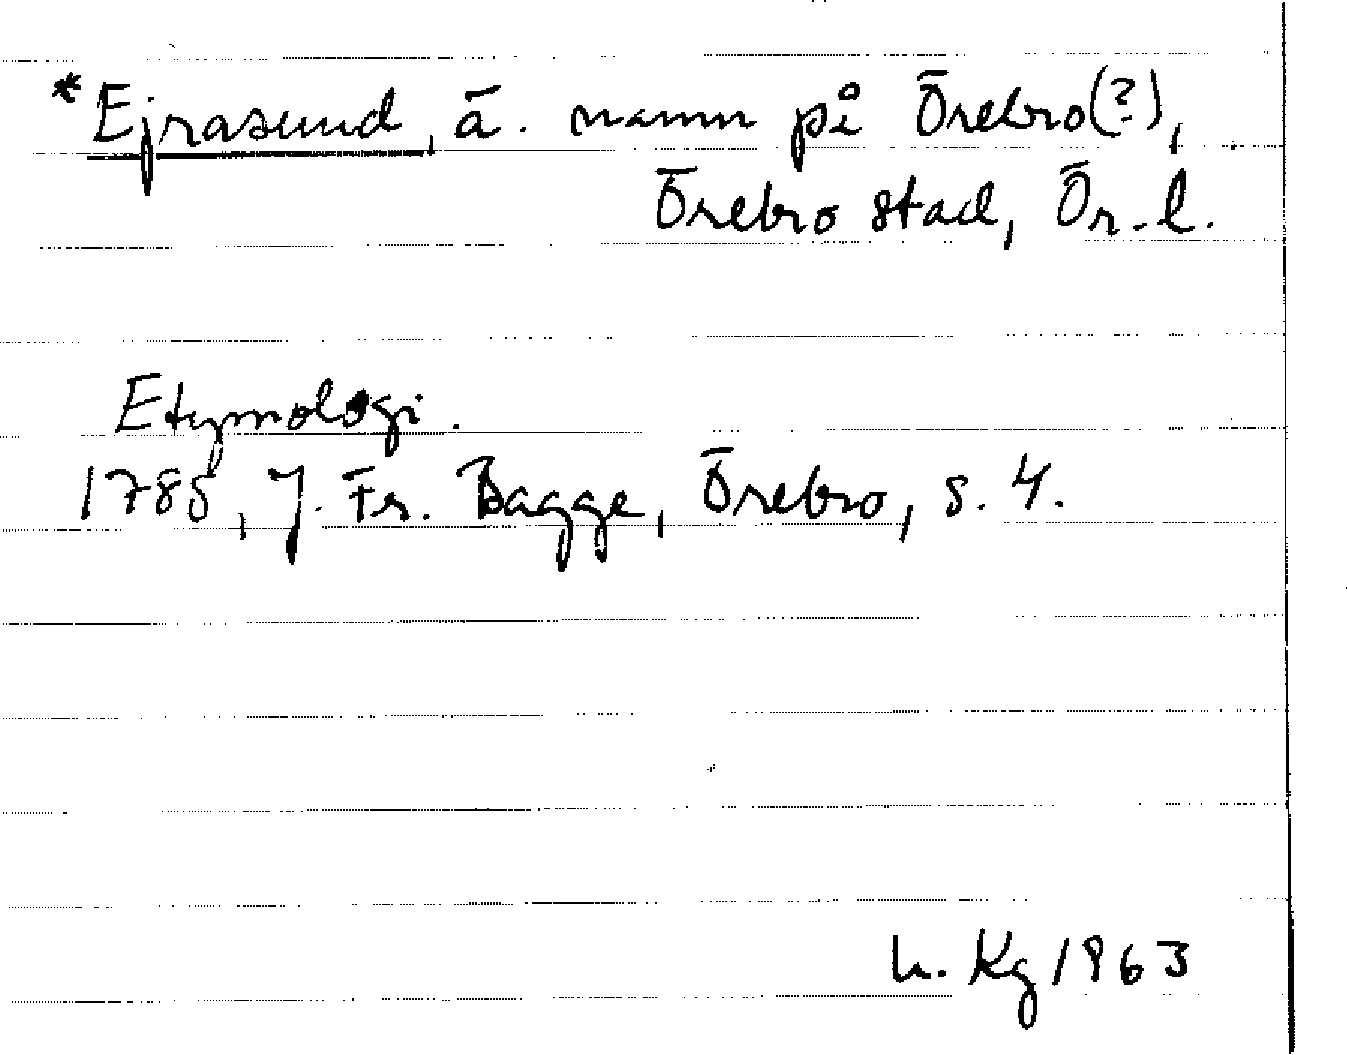 *Ejrasund, ä. namn på Örebro(?),
Örebro stad, Ör. l.
Etymologi.
1785, J. Fr. Bagge, Örebro, s. 4.
L. Kg 1963